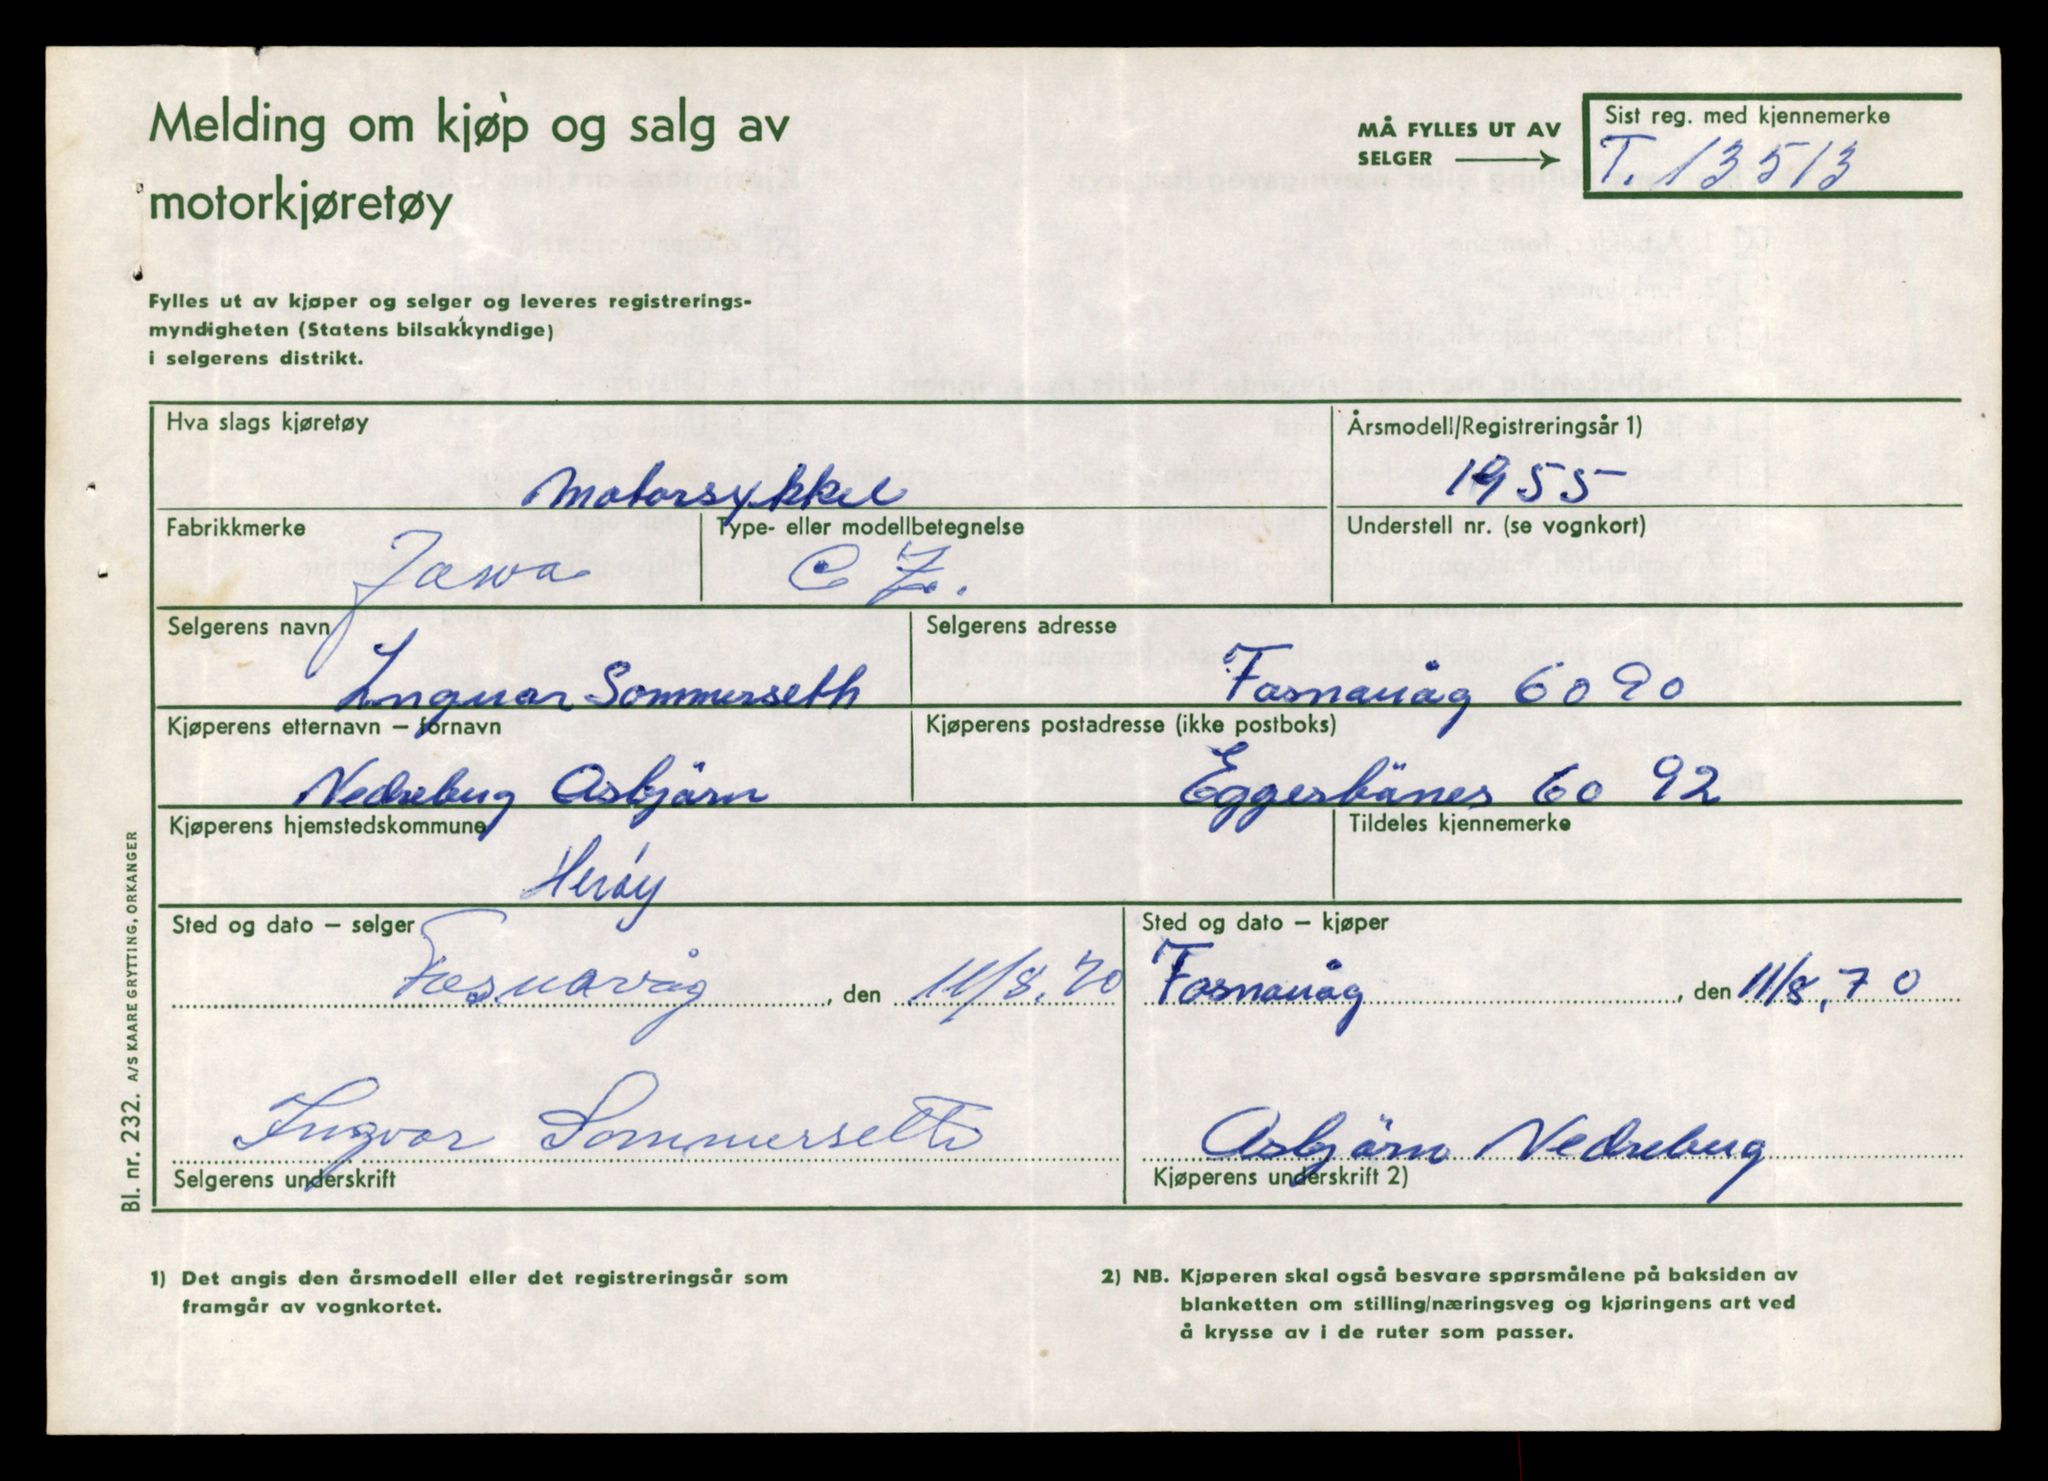 Melding om kjøp og salg av
motorkjøretøy
MÅ FYLLES UT AV
SELGER
Sist reg. med kjennemerke
T. 13513
Fylles ut av kjøper og selger og leveres registrerings-
myndigheten (Statens bilsakkyndige)
i selgerens distrikt.
Hva slags kjøretøy
Motorsykkel
Årsmodell/Registreringsår 1)
1955
Fabrikkmerke
Jawa
Type- eller modellbetegnelse
C Z.
Understell nr. (se vognkort)
Selgerens navn
Ingvar Sommerseth
Selgerens adresse
Fosnavåg 6090
Kjøperens etternavn – fornavn
Nedrebug Asbjörn
Kjøperens postadresse (ikke postboks)
Eggesbönes 60 92
Kjøperens hjemstedskommune
Heröy
Tildeles kjennemerke
Sted og dato – selger
Fosnavåg, den 11/8.70
Sted og dato – kjøper
Fosnavåg, den 11/8.70
Ingvar Sommerseth
Selgerens underskrift
Asbjörn Nedrebug
Kjøperens underskrift 2)
Bl. nr. 232. A/S KAARE GRYTTING, ORKANGER
1) Det angis den årsmodell eller det registreringsår som
framgår av vognkortet.
2) NB. Kjøperen skal også besvare spørsmålene på baksiden av
blanketten om stilling/næringsveg og kjøringens art ved
å krysse av i de ruter som passer.